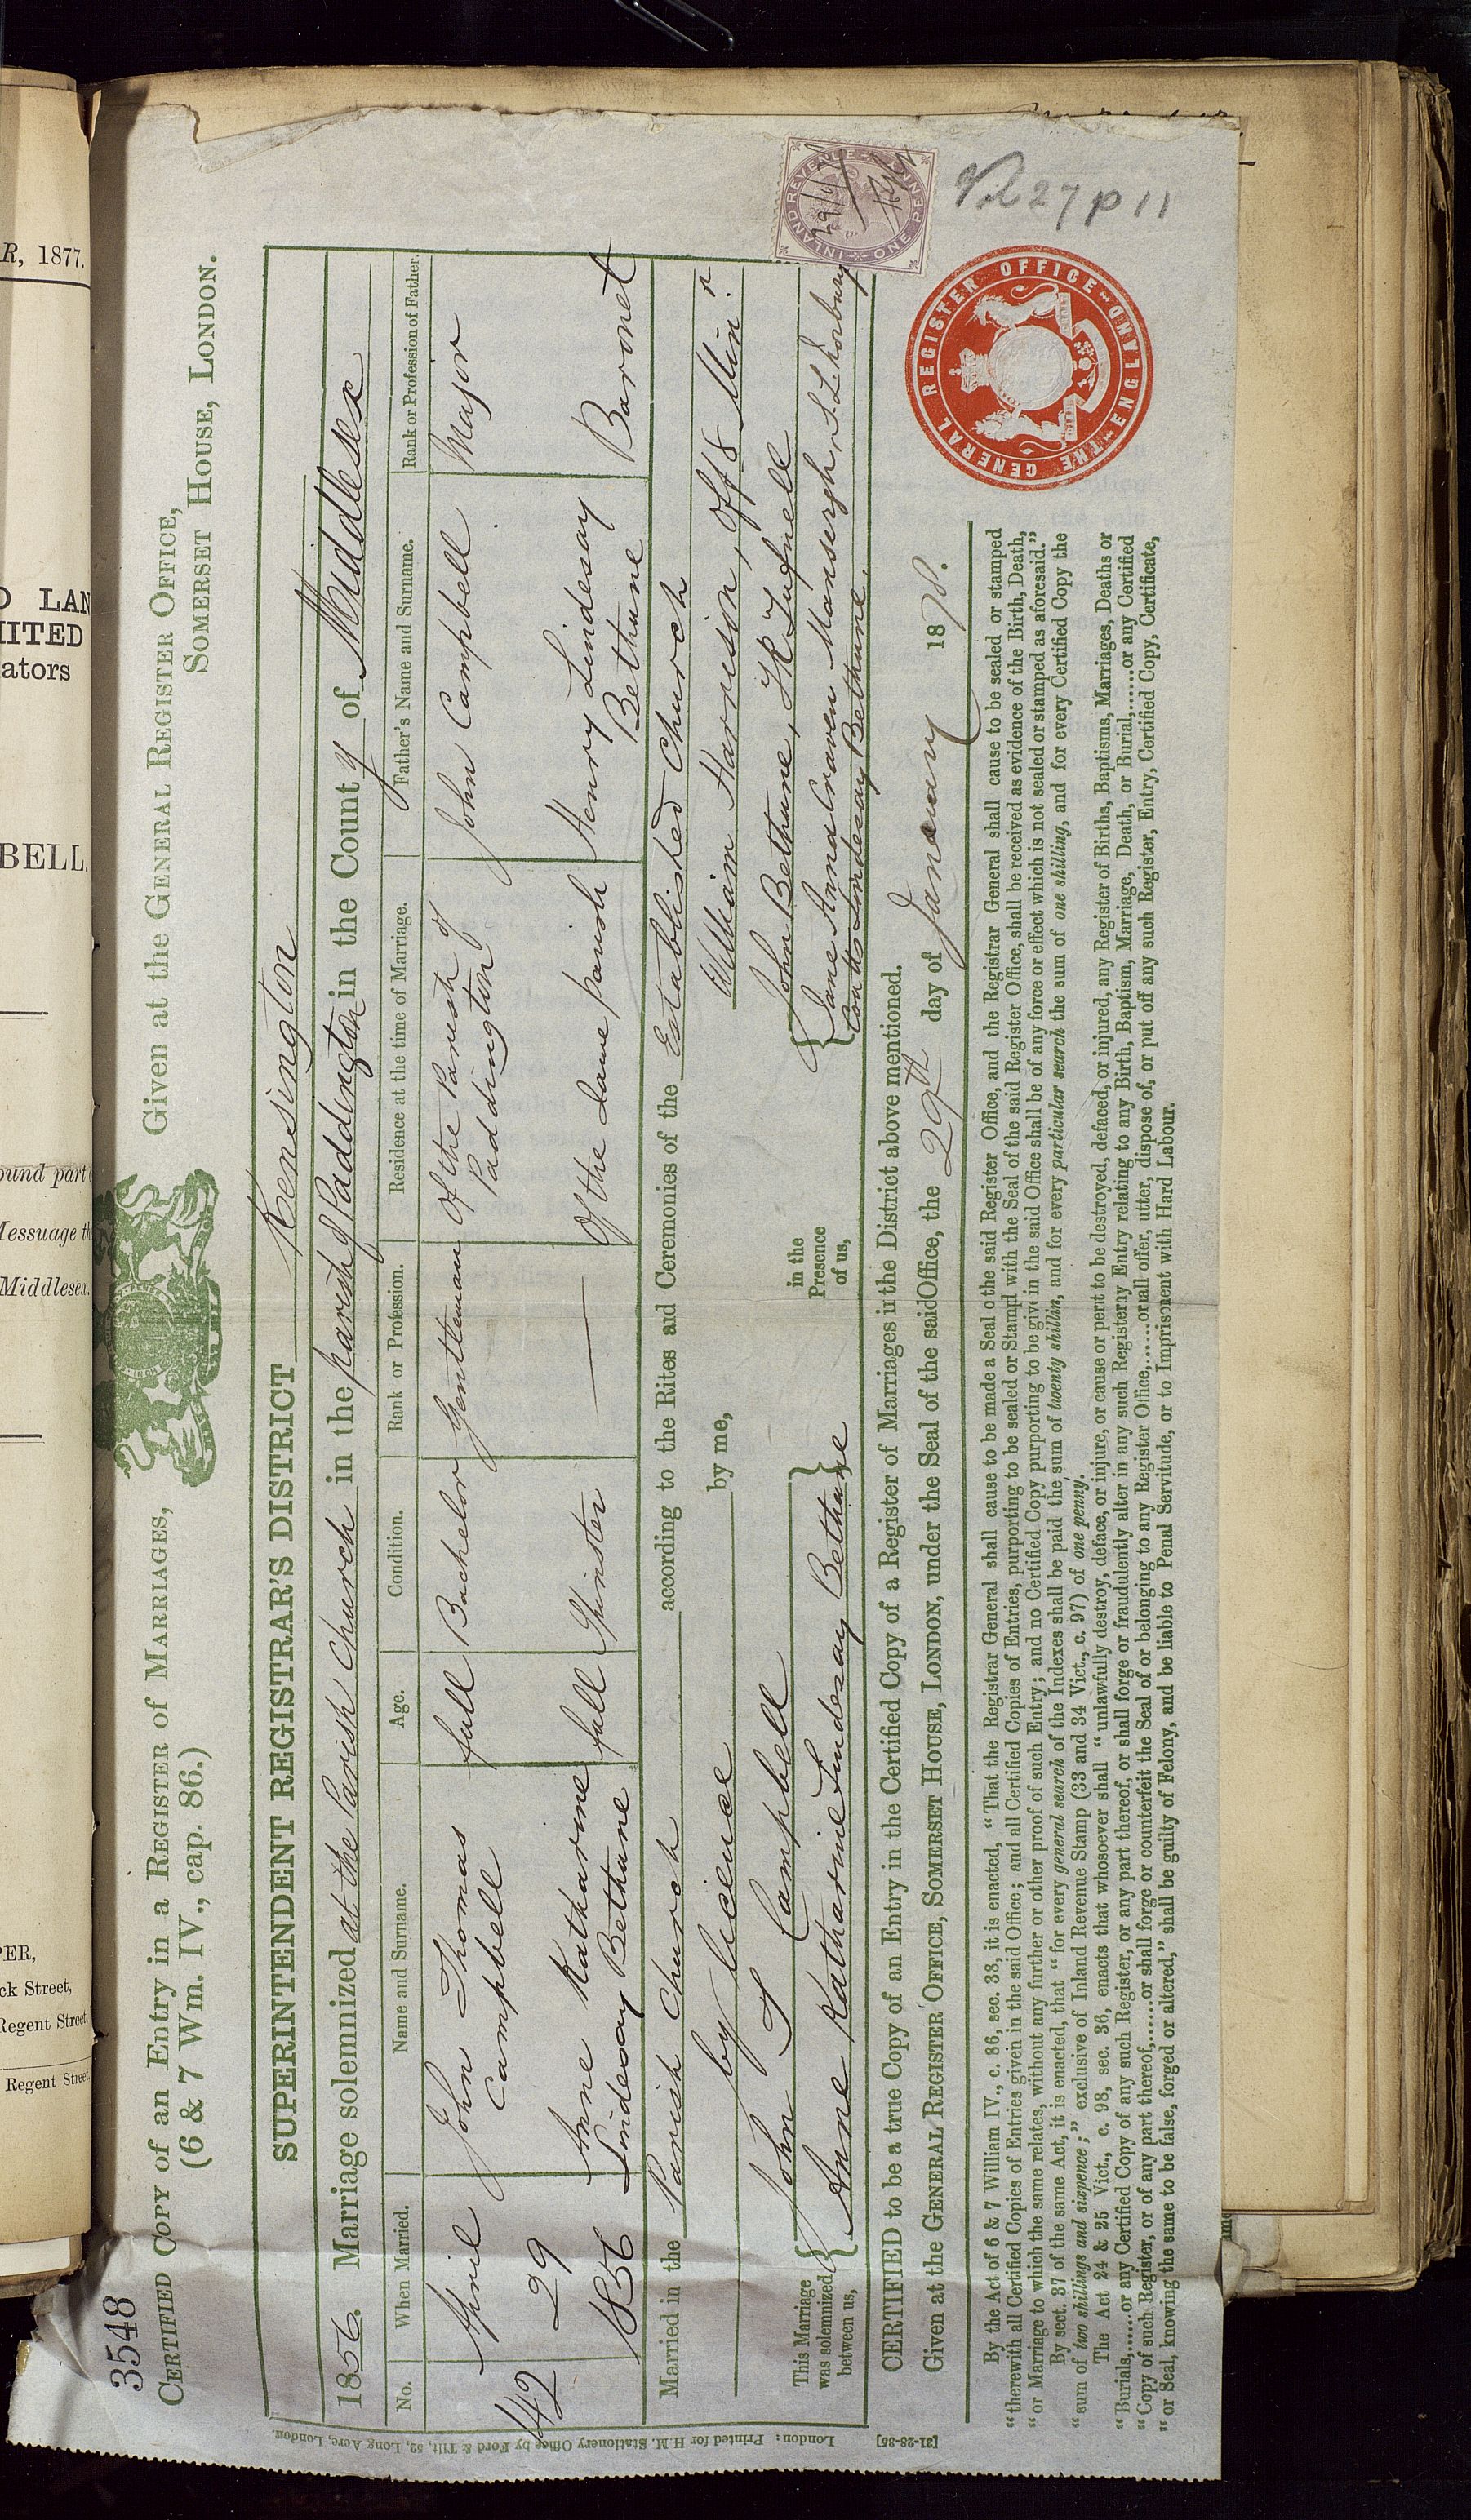 R, 1877.
D LAN
MITED
ators
BELL.
ound part
Messuage th
Middlesex.
PER,
ck Street,
Regent Street,
Regent Street.
3548
CERTIFIED COPY of an Entry in a REGISTER of MARRIAGES,
(6 & 7 Wm. IV., cap. 86.)
Given at the GENERAL REGISTER OFFICE,
SOMERSET HOUSE, LONDON.
SUPERINTENDENT REGISTRAR'S DISTRICT Kensington
1856. Marriage solemnized at the Parish Church in the parish of Paddington in the County of Middlesex
No. When Married. Name and Surname. Age. Condition. Rank or Profession. Residence at the time of Marriage. Father's Name and Surname. Rank or Profession of Father.
42 April 29 1856
John Thomas Campbell full Bachelor Gentleman Of the Parish of Paddington John Campbell Major
Anne Katharine Lindesay Bethune full Spinster — Of the same parish Henry Lindesay Bethune Baronet
Married in the Parish Church according to the Rites and Ceremonies of the Established Church
by licence by me, William Harrison, Off.g Min.r
This Marriage was solemnized between us, { John T Campbell
Anne Katharine Lindesay Bethune }
in the Presence of us, { John Bethune, Tufnell
Jane Anna Craven Mansergh, S. L. Thorbury
Coutts Lindesay Bethune.
CERTIFIED to be a true Copy of an Entry in the Certified Copy of a Register of Marriages in the District above mentioned.
Given at the GENERAL REGISTER OFFICE, SOMERSET HOUSE, LONDON, under the Seal of the said Office, the 29th day of January 1878.
By the Act of 6 & 7 William IV., c. 86, sec. 38, it is enacted, "That the Registrar General shall cause to be made a Seal o the said Register Office, and the Registrar General shall cause to be sealed or stamped
"therewith all Certified Copies of Entries given in the said Office; and all Certified Copies of Entries, purporting to be sealed or Stampd with the Seal of the said Register Office, shall be received as evidence of the Birth, Death,
"or Marriage to which the same relates, without any further or other proof of such Entry; and no Certified Copy purporting to be givn in the said Office shall be of any force or effect which is not sealed or stamped as aforesaid."
By sect. 37 of the same Act, it is enacted, that "for every general search of the Indexes shall be paid the sum of twenty shillin, and for every particular search the sum of one shilling, and for every Certified Copy the
"sum of two shillings and sixpence;" exclusive of Inland Revenue Stamp (33 and 34 Vict., c. 97) of one penny.
The Act 24 & 25 Vict., c. 98, sec. 36, enacts that whosoever shall "unlawfully destroy, deface, or injure, or cause or perit to be destroyed, defaced, or injured, any Register of Births, Baptisms, Marriages, Deaths or
"Burials,......or any Certified Copy of any such Register, or any part thereof, or shall forge or fraudulently alter in any such Registerny Entry relating to any Birth, Baptism, Marriage, Death, or Burial,......or any Certified
"Copy of such Register, or of any part thereof,......or shall forge or counterfeit the Seal of or belonging to any Register Office,......or all offer, utter, dispose of, or put off any such Register, Entry, Certified Copy, Certificate,
"or Seal, knowing the same to be false, forged or altered," shall be guilty of Felony, and be liable to Penal Servitude, or to Imprisonent with Hard Labour.
London: Printed for H.M. Stationery Office by Ford & Tilt, 52, Long Acre, London.
[31-28-35]
INLAND REVENUE
ONE PENNY
29/1/78
THE GENERAL REGISTER OFFICE ENGLAND
Vol 27 p 11